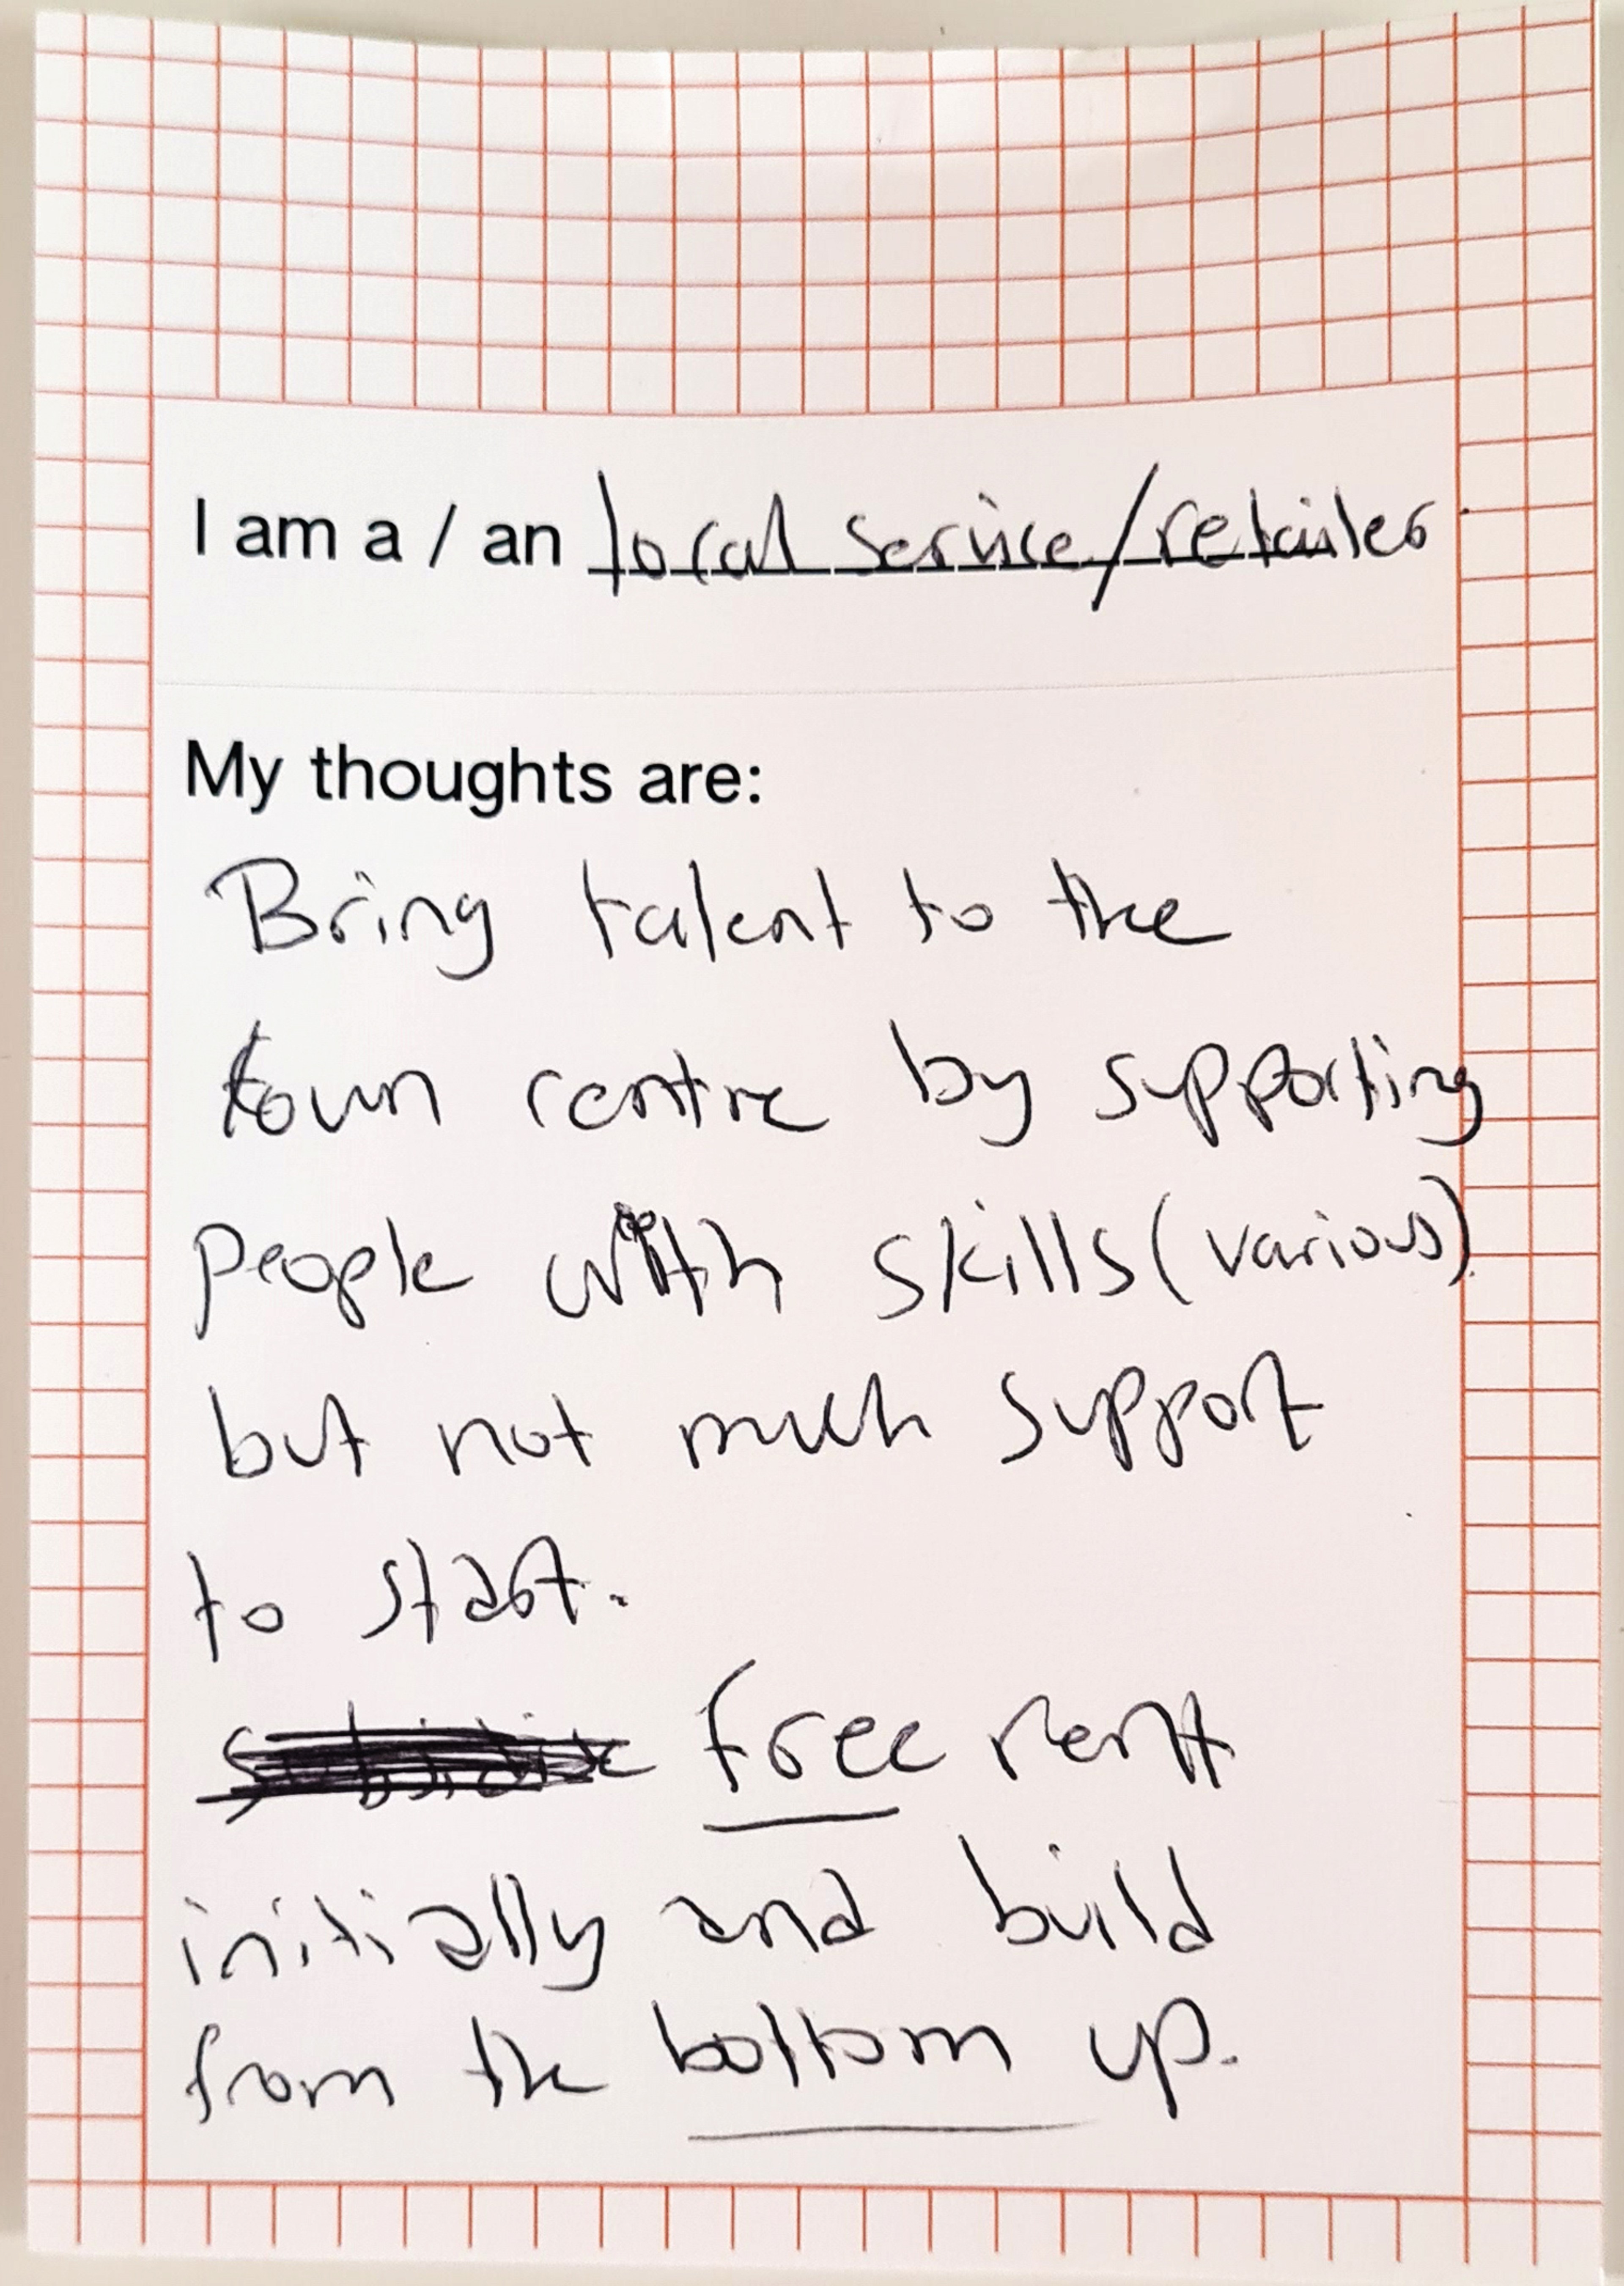 I am a / an local service/retailer
My thoughts are:
Bring talent to the
town centre by supporting
people with skills (various)
but not much support
to start.
free rent
initially and build
from the bottom up.